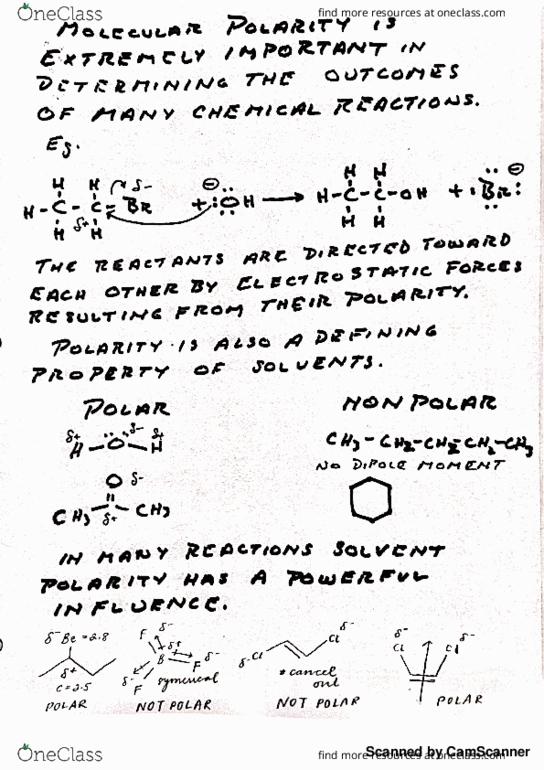 OneClass
find more resources at oneclass.com
MOLECULAR POLARITY IS
EXTREMELY IMPORTANT IN
DETERMINING THE OUTCOMES
OF MANY CHEMICAL REACTIONS.
Eg.
H H δ-
H-C-C-BR + :ÖH → H-C-C-OH + :Br: ⊖
δ+
H H
THE REACTANTS ARE DIRECTED TOWARD
EACH OTHER BY ELECTROSTATIC FORCES
RESULTING FROM THEIR POLARITY.
POLARITY IS ALSO A DEFINING
PROPERTY OF SOLVENTS.
POLAR NON POLAR
δ+ δ- δ+
H-O-H CH3-CH2-CH2-CH2-CH3
NO DIPOLE MOMENT
O δ-
CH3 δ+ CH3
IN MANY REACTIONS SOLVENT
POLARITY HAS A POWERFUL
INFLUENCE.
δ- Be = 2.8
δ+
C=2.5
POLAR
F δ-
B δ+
F δ-
δ- F
symerical
NOT POLAR
δ- Cl
Cl δ-
* cancel
out
NOT POLAR
δ- δ-
Cl Cl
POLAR
OneClass
find more resources at oneclass.com
Scanned by CamScanner